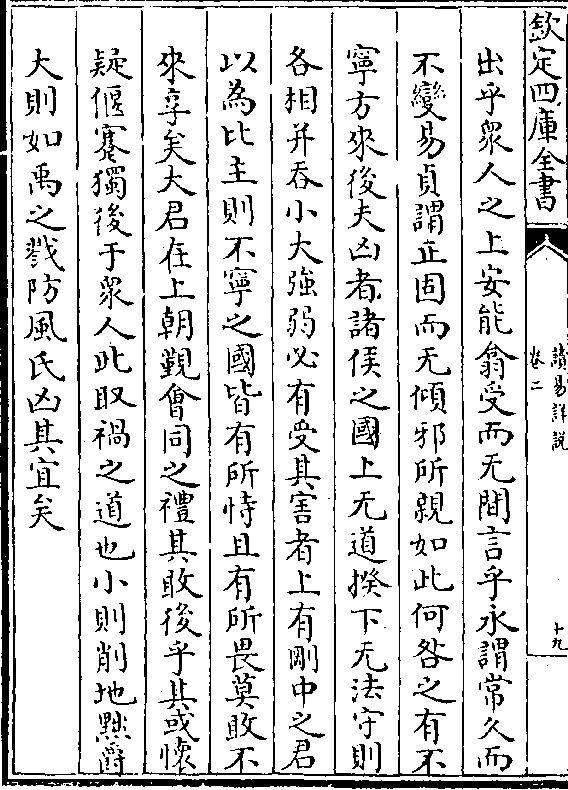 欽定四庫全書
讀易詳說
卷二
十九
出乎衆人之上安能翕受而无間言乎永謂常久而
不變易貞謂正固而无傾邪所親如此何咎之有不
寧方來後夫凶者諸侯之國上无道揆下无法守則
各相并吞小大強弱必有受其害者上有剛中之君
以為比主則不寧之國皆有所恃且有所畏莫敢不
來享矣大君在上朝覲會同之禮其敢後乎其或懷
疑偃蹇獨後于衆人此取禍之道也小則削地黜爵
大則如禹之戮防風氏凶其宜矣